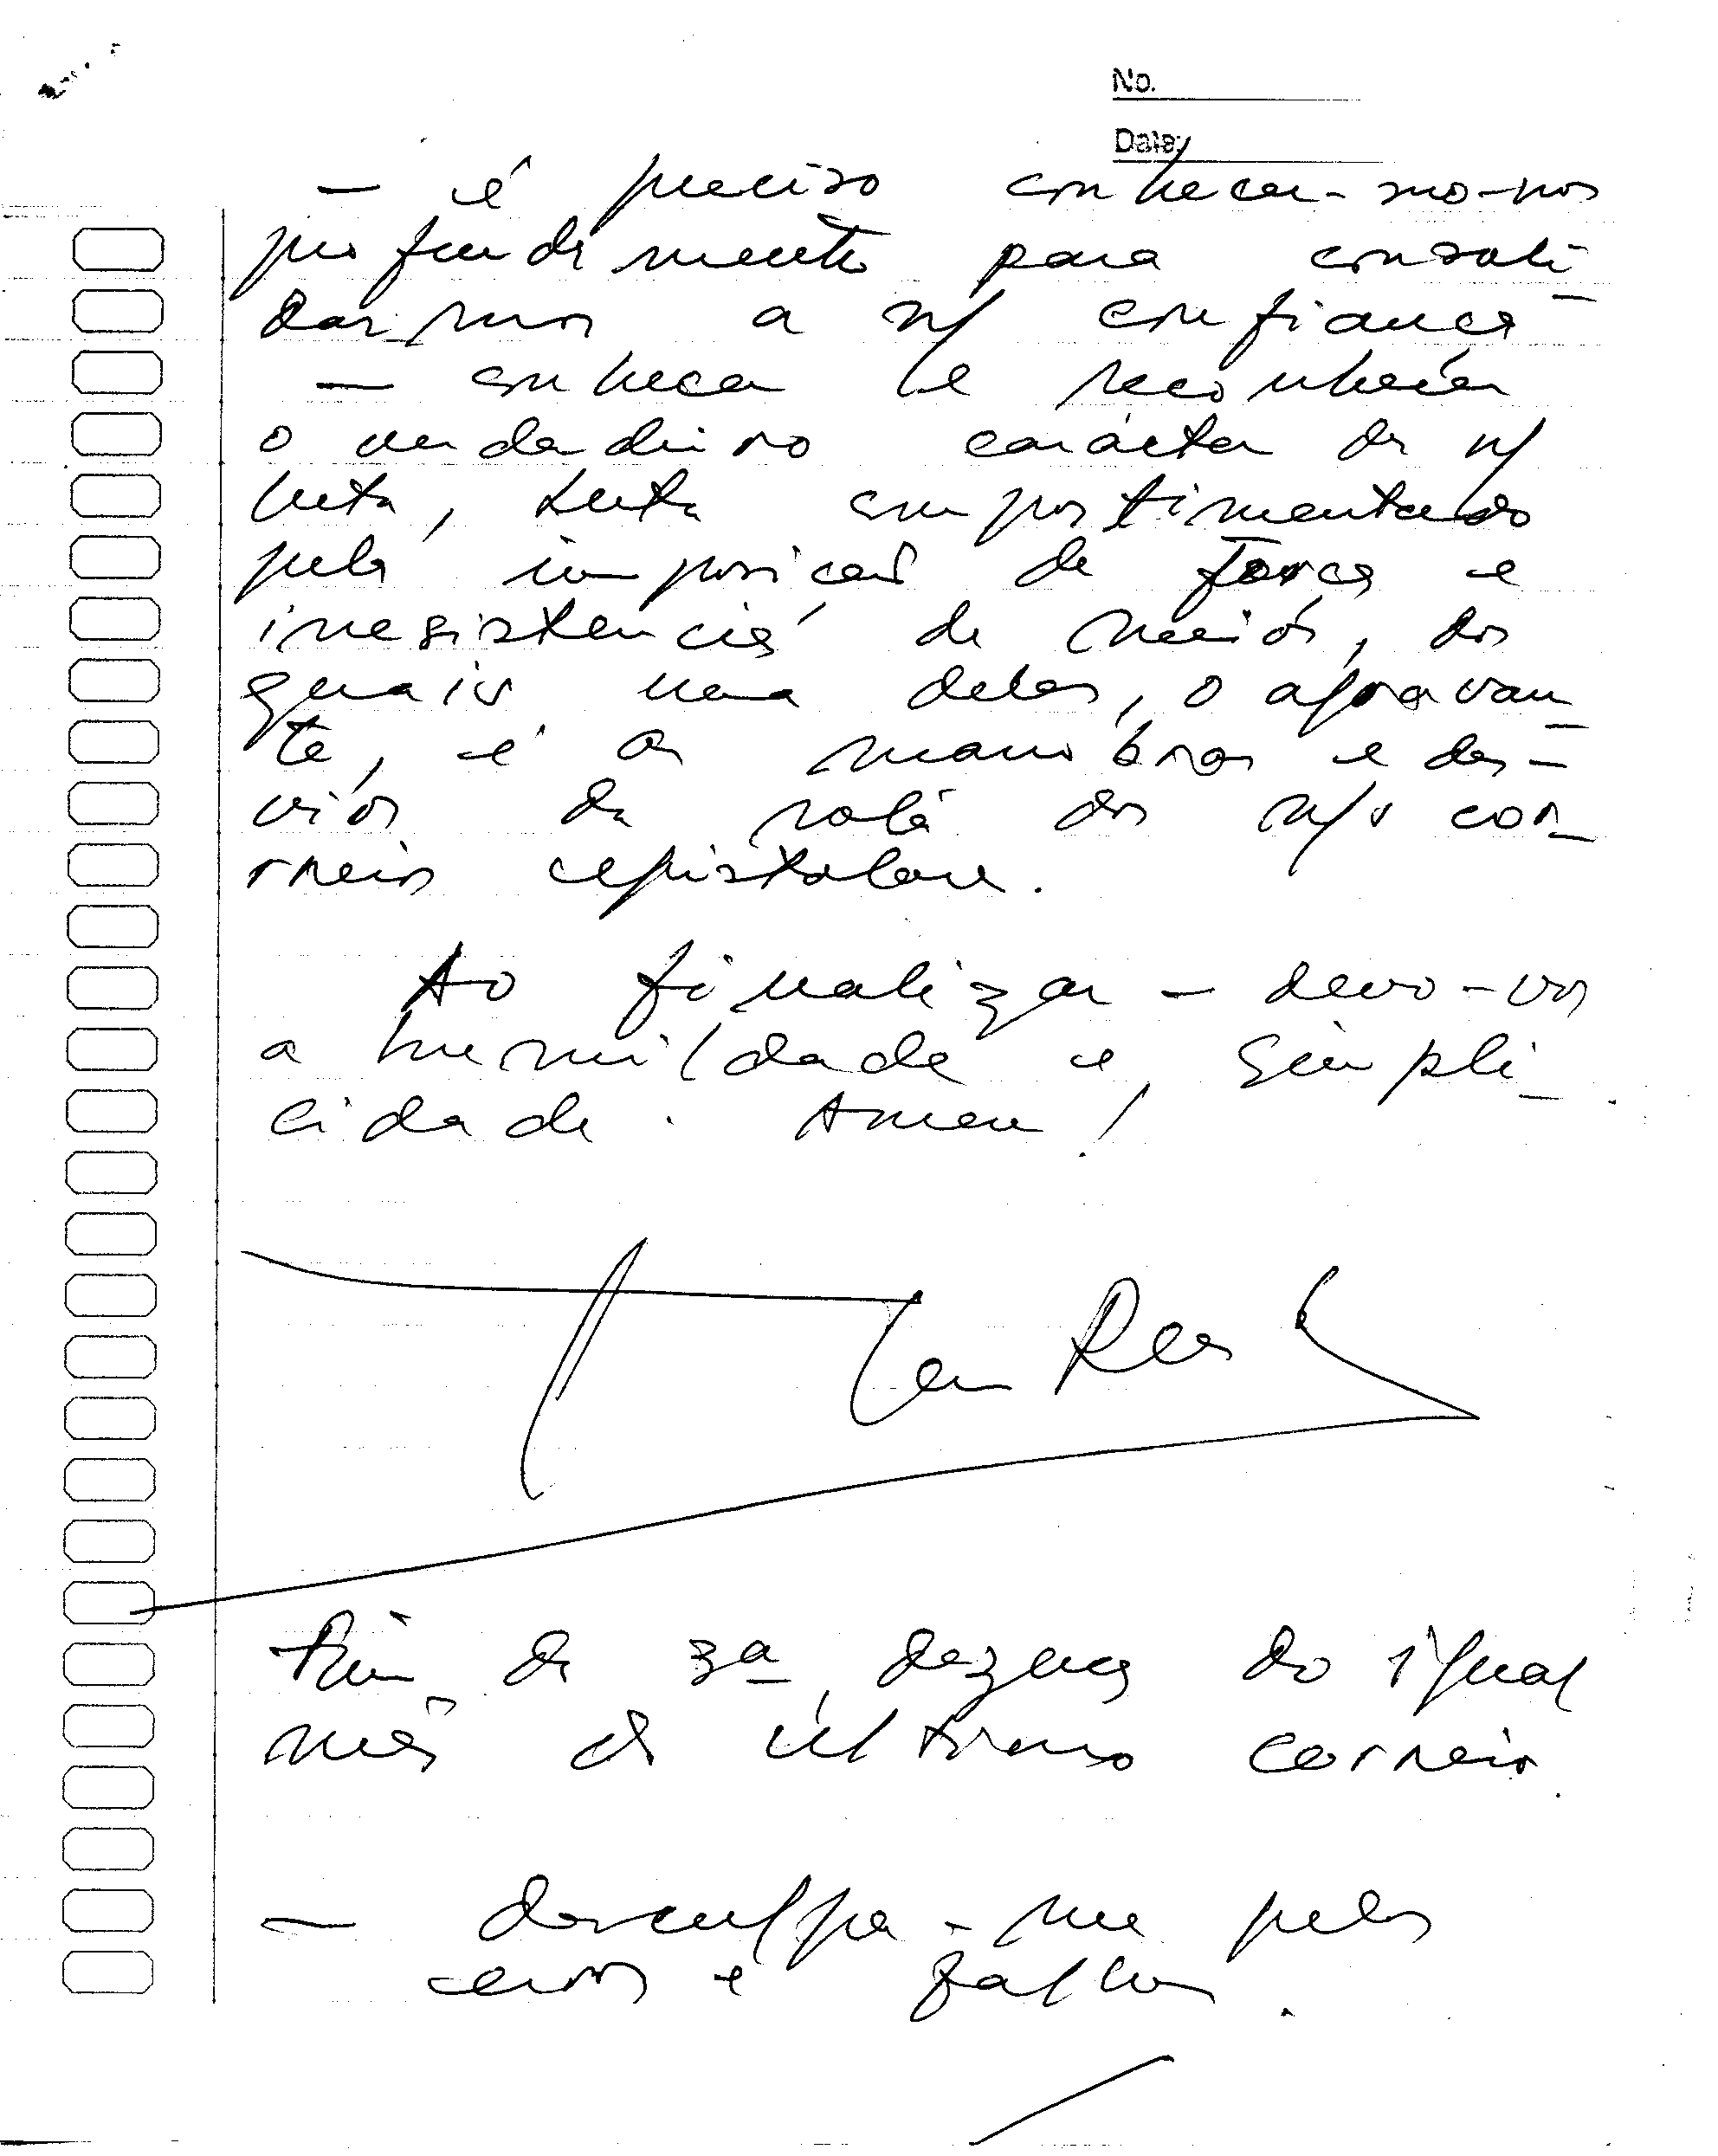 No.
Date:
— é preciso conhecer-mo-nos
profundamente para consoli-
darmos a n/ confiança
— conhecer e reconhecer
o verdadeiro carácter da n/
luta, luta compostimentado
pela imposicão de força e
inesistencia de meios, dos
quais uma delas, o agravan-
te, é as manobras e des-
vios da rota dos n/s cor-
rreios epistolare.
Ao finalizar — devo-vos
a humildade e simpli-
cidade. Amen!
Fim da 3ª dezena do igual
mês do último correio.
— desculpa-me pelos
erros e falhas.